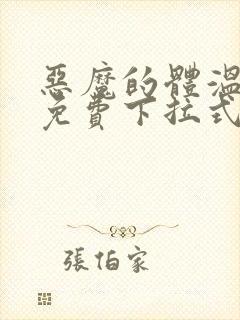 惡魔的體溫
免費下拉式
張伯家